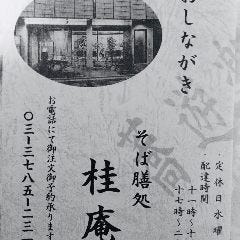 おしながき
定休日水曜
配達時間
十一時〜十
十七時〜二
そば膳処
桂庵
お電話にて御注文御予約承ります
〇三ー三七八五ー二三一